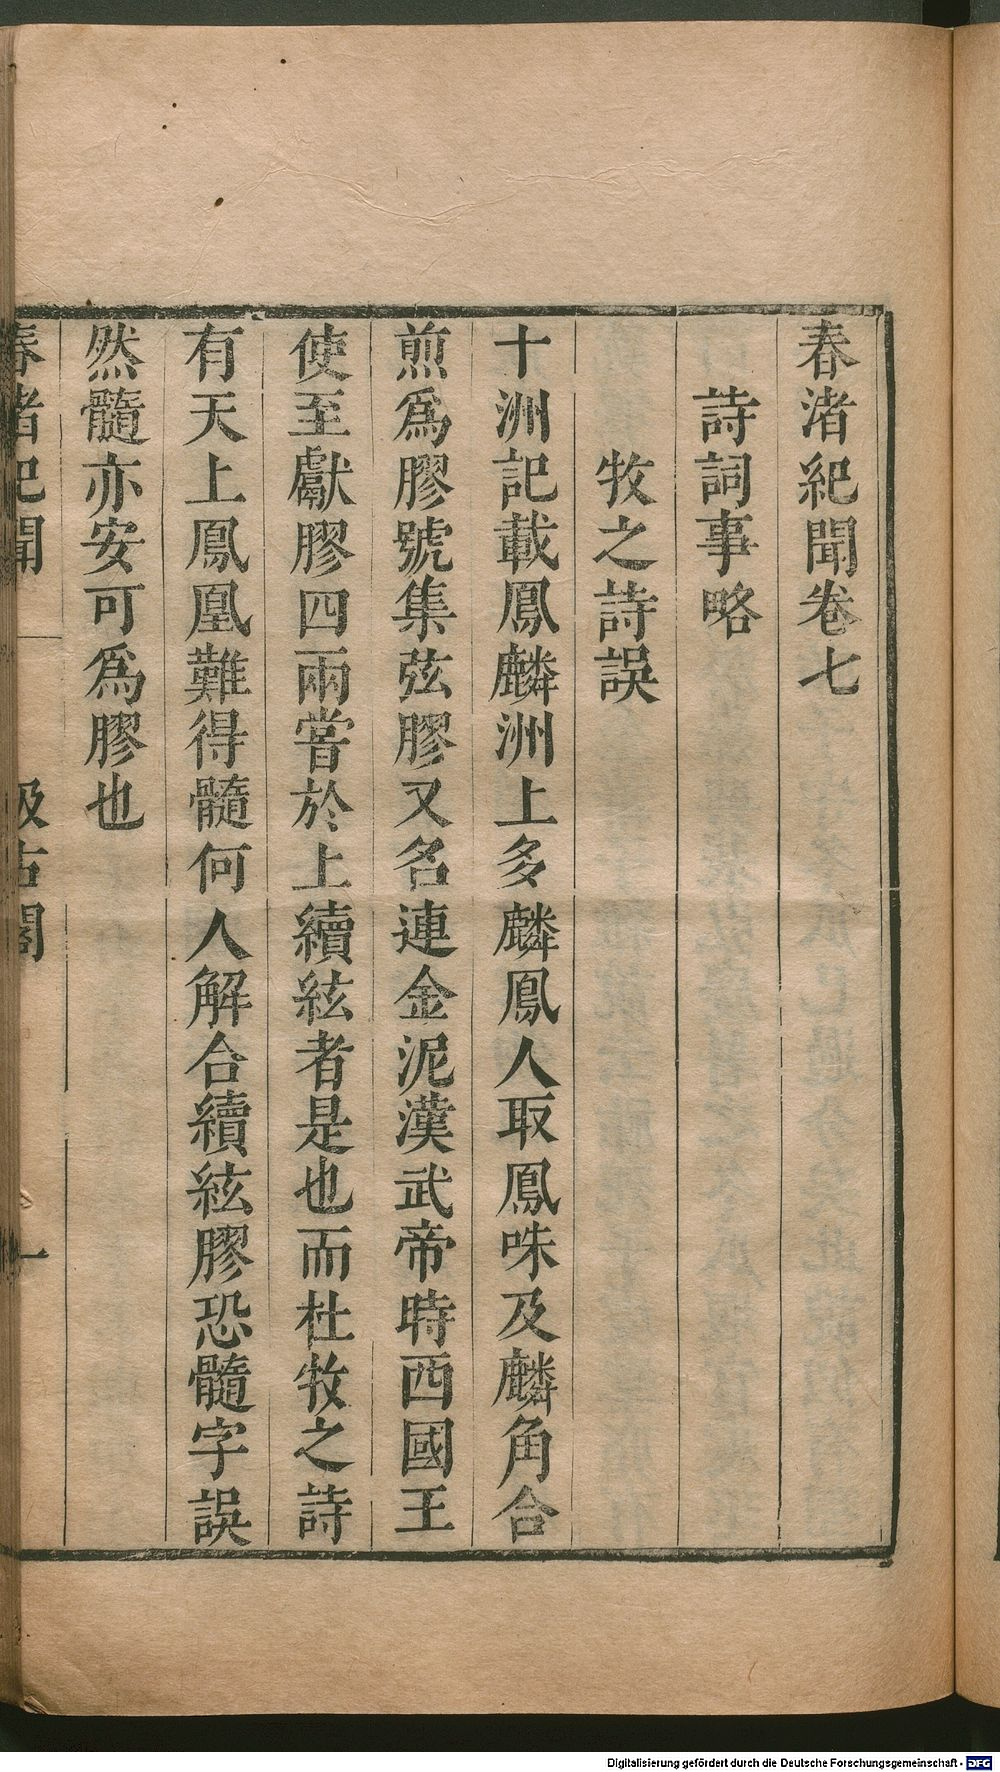 春渚紀聞卷七
詩詞事略
牧之詩誤
十洲記載鳳麟洲上多麟鳳人取鳳咮及麟角合
煎爲膠號集弦膠又名連金泥漢武帝時西國王
使至獻膠四兩嘗於上續絃者是也而杜牧之詩
有天上鳳凰難得髓何人解合續絃膠恐髓字誤
然髓亦安可爲膠也
春渚紀聞 一 汲古閣 一
Digitalisierung gefördert durch die Deutsche Forschungsgemeinschaft - DFG